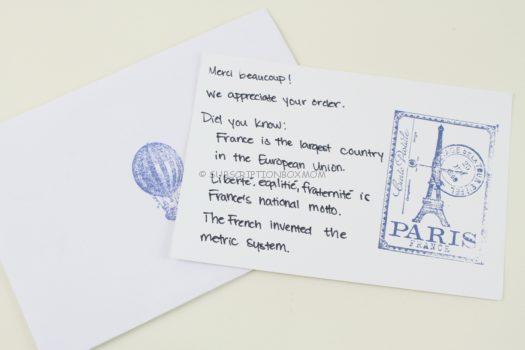 Merci beaucoup!
We appreciate your order.
Did you know:
France is the largest country
in the European Union.
© SUBSCRIPTIONBOXMOM
Liberté, egalitié, fraternité is
France's national motto.
The French invented the
metric system.
Carte Postale
PARIS
FRANCE